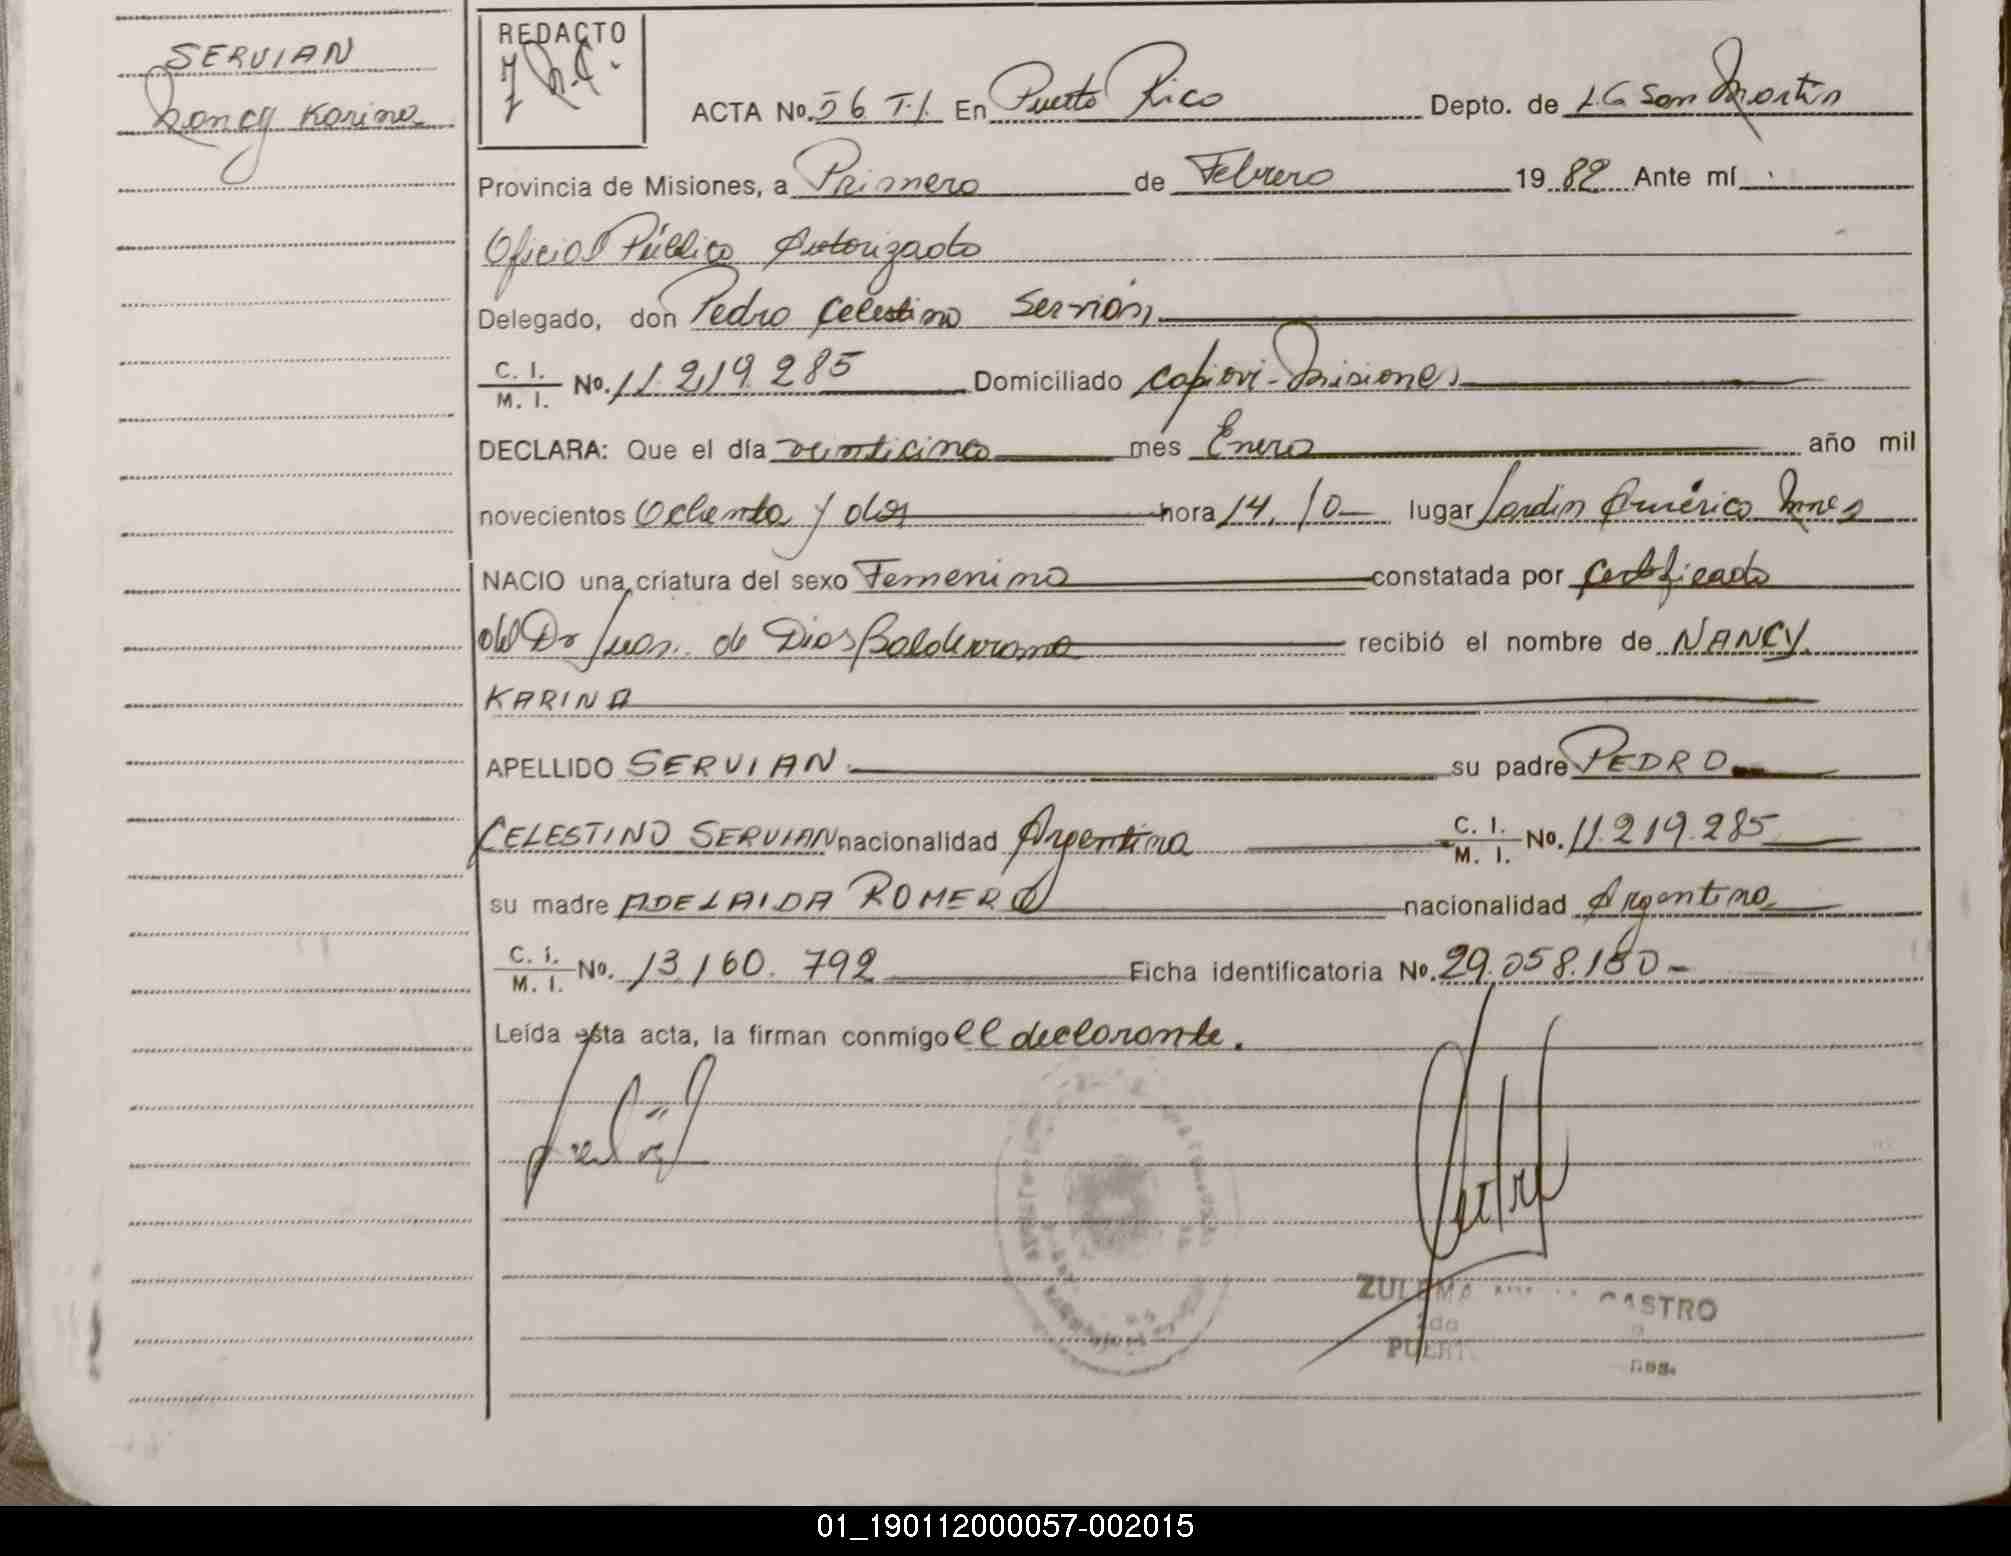 SERVIAN
Nancy Karina
REDACTO
ACTA No. 56 T.I. En Puerto Rico Depto. de L.G San Martin
Provincia de Misiones, a Primero de Febrero 1982 Ante mí
Oficial Público Autorizado
Delegado, don Pedro Celestino Servián,
C. I. / M. I. No. 11.219.285 Domiciliado Capiovi-Misiones
DECLARA: Que el día veinticinco mes Enero año mil
novecientos Ochenta y dos hora 14,10 lugar Jardin América Mnes
NACIO una criatura del sexo Femenino constatada por Certificado
del Dr Juan de Dios Balderrama recibió el nombre de NANCY
KARINA
APELLIDO SERVIAN su padre PEDRO
CELESTINO SERVIAN nacionalidad Argentina C. I. / M. I. No. 11.219.285
su madre ADELAIDA ROMERO nacionalidad Argentina
C. I. / M. I. No. 13.160.792 Ficha identificatoria No. 29.058.180-
Leída esta acta, la firman conmigo el declarante.
ZULEMA CASTRO
01_190112000057-002015